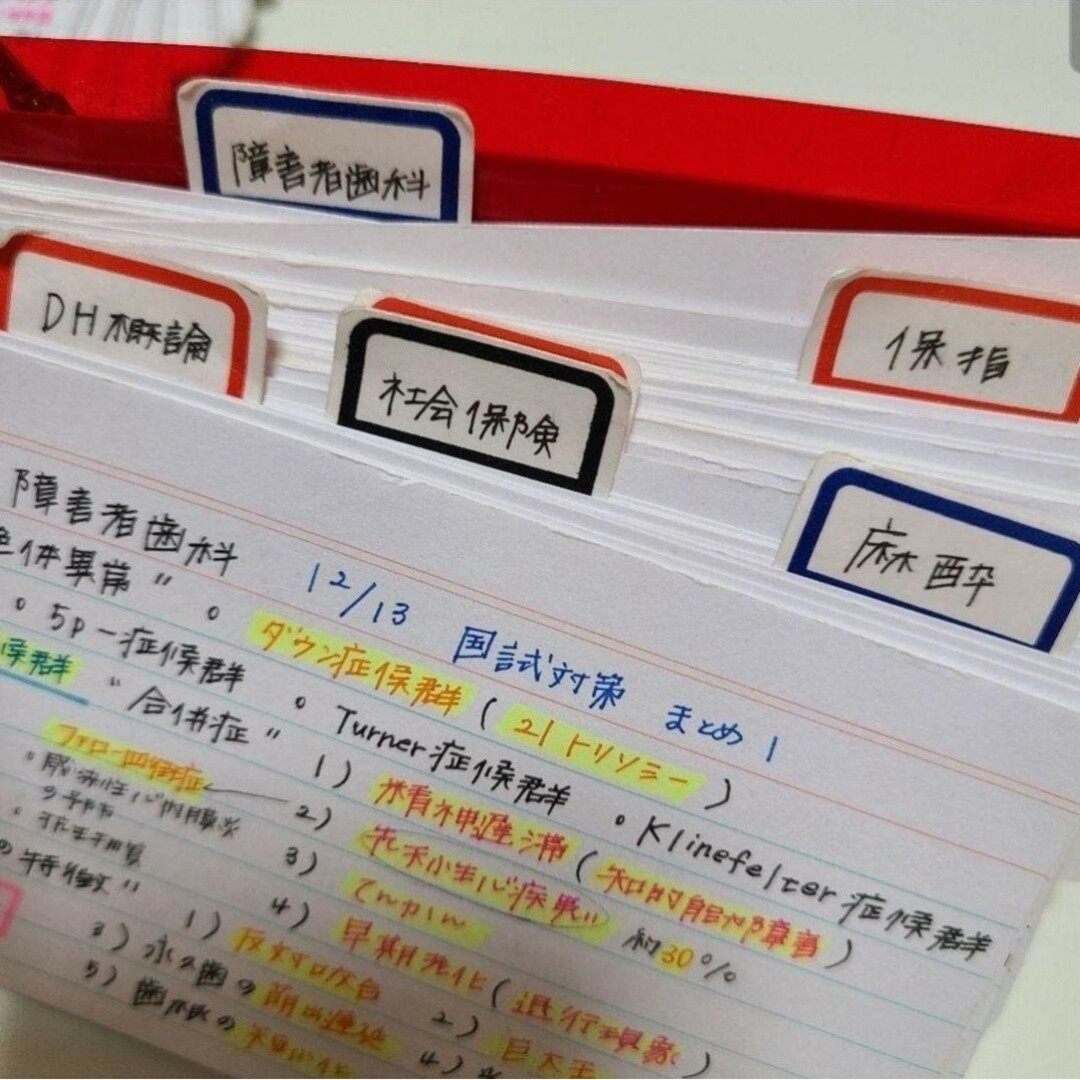 障害者歯科
DH概論
社会保険
保指
麻酔
障害者歯科 12/13 国試対策 まとめ1
色体異常" 。ダウン症候群(21トリソミー)
。5p-症候群 。Turner症候群 。Klinefelter症候群
候群 "合併症" 1) 精神遅滞(知的能力障害)
ファロー四徴症 2) 先天性心疾患 約30%
。感染性心内膜炎 3) てんかん
の予防 4) 早期老化(退行現象)
の特徴" 1) 反対咬合 2) 巨大舌
3) 永久歯の萌出遅延 4)
5) 歯の